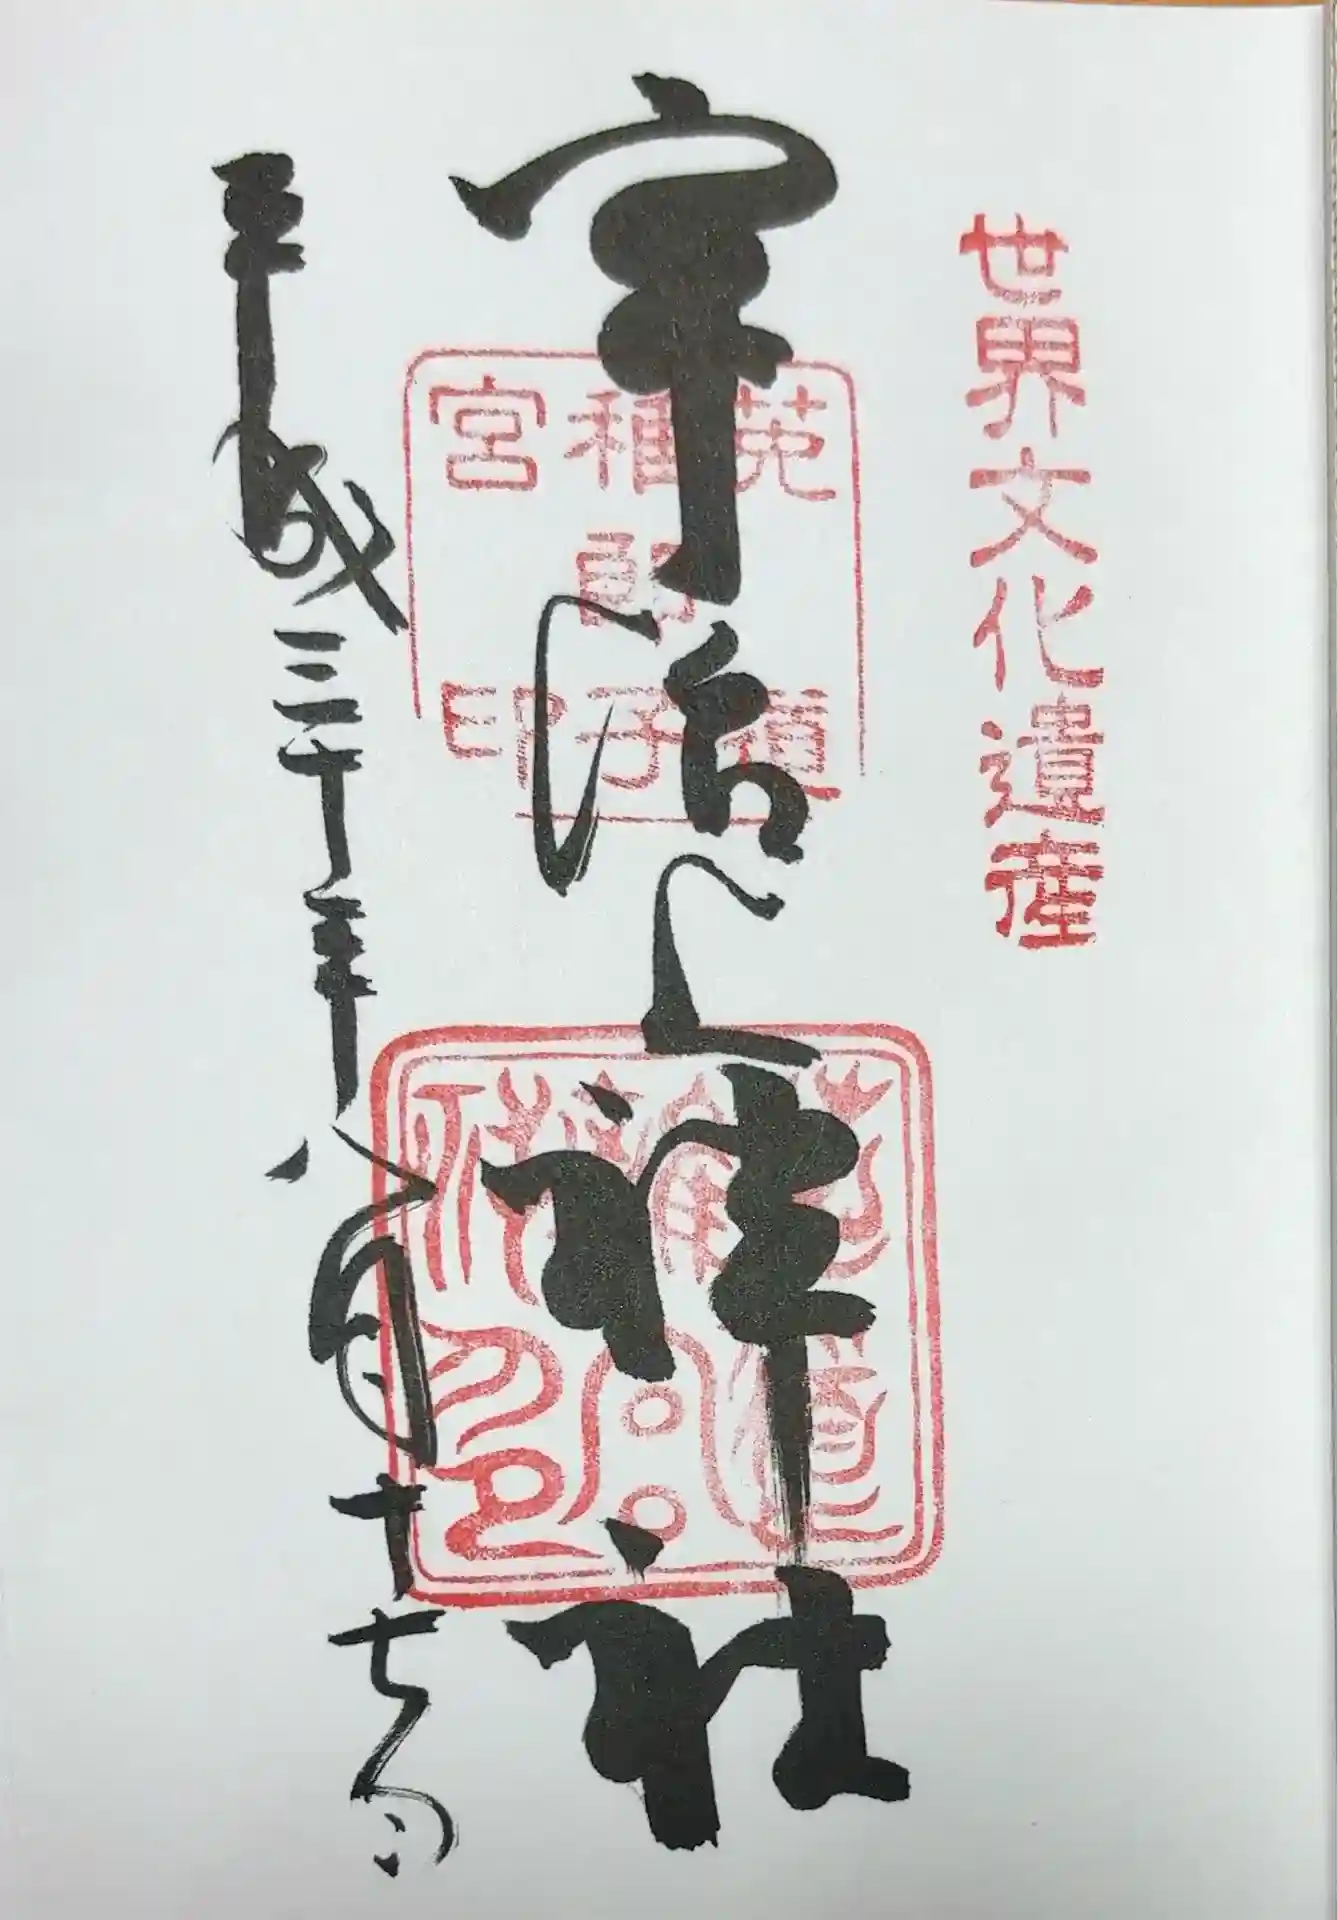 世界文化遺産
宇治上神社
菟道
稚郎子
宮印
平成三十年八月十七日